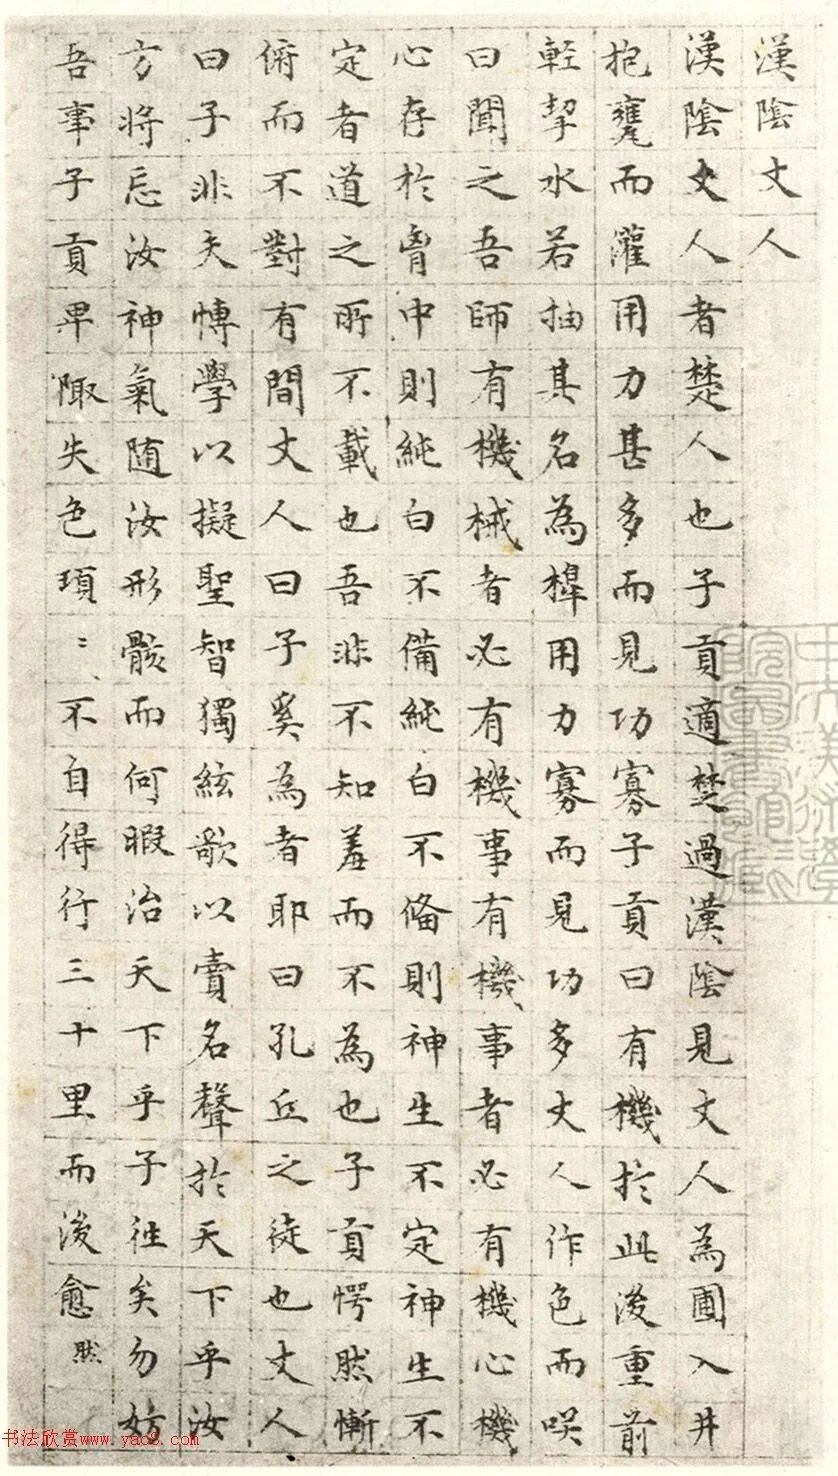 漢陰丈人
漢陰丈人者楚人也子貢適楚過漢陰見丈人為圃入井
抱甕而灌用力甚多而見功寡子貢曰有機於此後重前
輕挈水若抽其名為槔用力寡而見功多丈人作色而咲
曰聞之吾師有機械者必有機事有機事者必有機心機
心存於胷中則純白不備純白不備則神生不定神生不
定者道之所不載也吾非不知羞而不為也子貢愕然慚
俯而不對有間丈人曰子奚為者耶曰孔丘之徒也丈人
曰子非夫博學以擬聖智獨絃歌以賣名聲於天下乎汝
方將忘汝神氣随汝形骸而何暇治天下乎子往矣勿妨
吾事子貢卑陬失色項〻不自得行三十里而後愈 然
中央美術學院圖書館藏
书法欣赏www.yac8.com